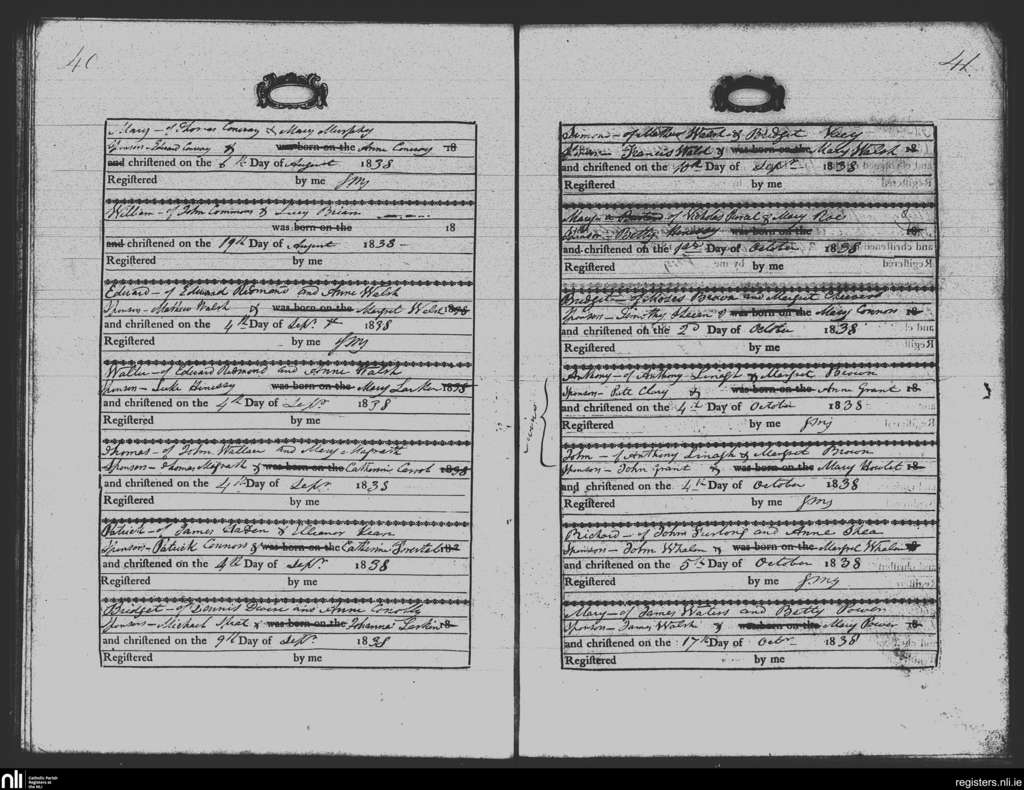 40
Mary - of Thomas Conway & Mary Murphy
Sponsors Edward Conway & was born on the Anne Conway 18
and christened on the 6th Day of August 1838
Registered by me JMy
William - of John Commons & Lucy Brian
was born on the 18
and christened on the 19th Day of August 1838 -
Registered by me
Edward - of Edward Redmond and Anne Walsh
Sponsors - Mathew Walsh & was born on the Margret Walsh 1838
and christened on the 4th Day of Sepr. 1838
Registered by me JMy
Walter - of Edward Redmond and Anne Walsh
Sponsors - Luke Henessy was born on the Mary Larken 1838
and christened on the 4th Day of Sepr. 1838
Registered by me
Thomas - of John Wallace and Mary Magrath
Sponsors - Thomas Magrath & was born on the Catherine Carrol 1838
and christened on the 4th Day of Sepr. 1838
Registered by me
Patrick - of James & Elleanor
Sponsors - Patrick Connors & was born on the Catherine 18
and christened on the 4th Day of Sepr. 1838
Registered by me
Bridget - of Dennis and Anne
Sponsors - Michael & was born on the Johanna Larkin 18
and christened on the 9th Day of Sepr. 1838
Registered by me
41
Simond - of Mathew Walsh & Bridget
Francis Walsh & was born on the Mary Walsh 18
and christened on the 10th Day of Sepr. 1838
Registered by me
Mary - a Bastard of Nicholas & Mary Roe
Betty was born on the 18
and christened on the 1st Day of October 1838
Registered by me
Bridget - of Moses Brown and Margret
Sponsors - Timothy & was born on the Mary Connors 18
and christened on the 2d Day of October 1838
Registered by me
twins
Anthony - of Anthony Linagh & Margret Brown
Sponsors - Pate Clary & was born on the Anne Grant 18
and christened on the 4th Day of October 1838
Registered by me JMy
John - of Anthony Linagh & Margret Brown
Sponsors - John Grant & was born on the Mary Houlet 18
and christened on the 4th Day of October 1838
Registered by me JMy
Richard - of John Furlong and Anne Shea
Sponsors - John Whalen & was born on the Margret Whalen 18
and christened on the 5th Day of October 1838
Registered by me JMy
Mary - of James Waters and Betty Power
Sponsors - James Walsh & was born on the Mary Power 18
and christened on the 17th Day of Octbr. 1838
Registered by me
nli
Catholic Parish
Registers at
the NLI
registers.nli.ie